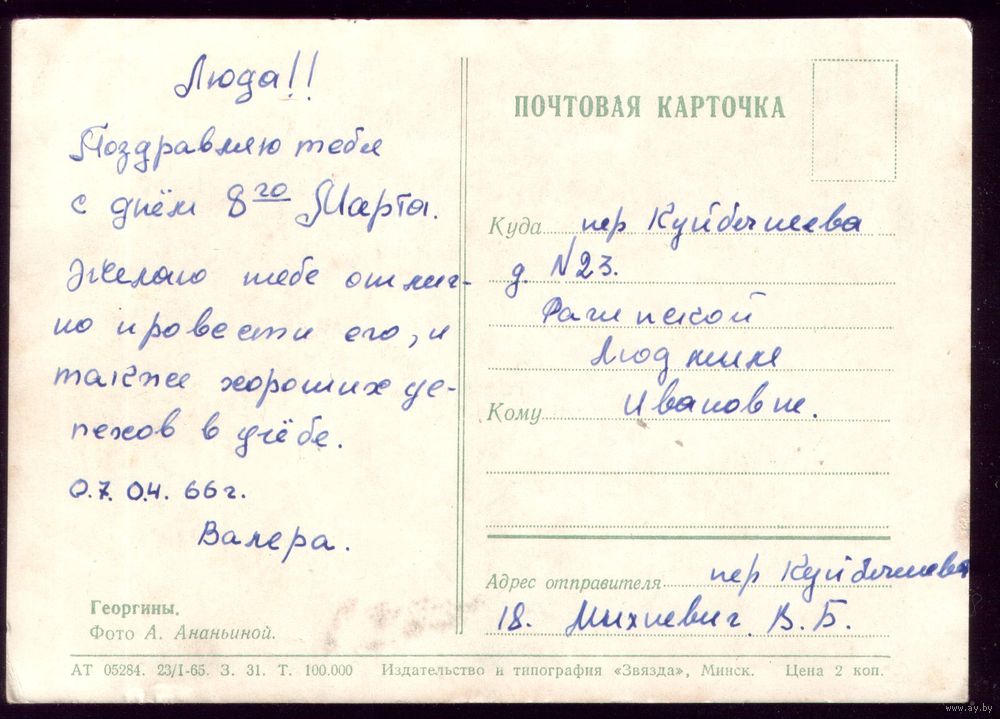 Люда!!
Поздравляю тебя
с днём 8го Марта.
Желаю тебе отлич-
но провести его, и
также хороших ус-
пехов в учёбе.
07. 04. 66г.
Валера.
Георгины.
Фото А. Ананьиной.
ПОЧТОВАЯ КАРТОЧКА
Куда пер Куйбышева
д. N23.
Людмиле
Кому Ивановне.
Адрес отправителя пер Куйбышева
18. Михневич В.Б.
АТ 05284. 23/I-65. З. 31. Т. 100.000 Издательство и типография «Звязда», Минск. Цена 2 коп.
www.ay.by